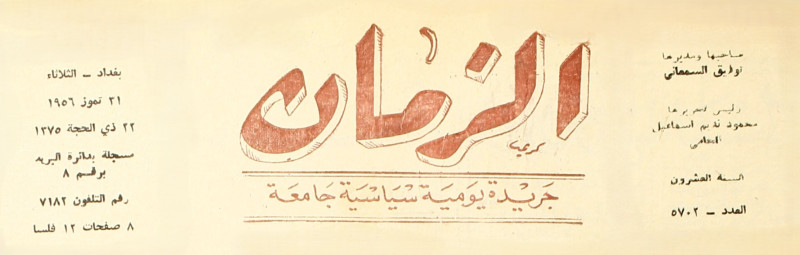 صاحبها ومديرها
توفيق السمعاني
رئيس تحريرها
محمود نديم اسماعيل
المحامي
السنة العشرون
العدد – ٥٧٠٢
الزمان
كريم
جريدة يومية سياسية جامعة
بغداد – الثلاثاء
٣١ تموز ١٩٥٦
٢٢ ذي الحجة ١٣٧٥
مسجلة بدائرة البريد
برقم ٨
رقم التلفون ٧١٨٢
٨ صفحات ١٢ فلسا